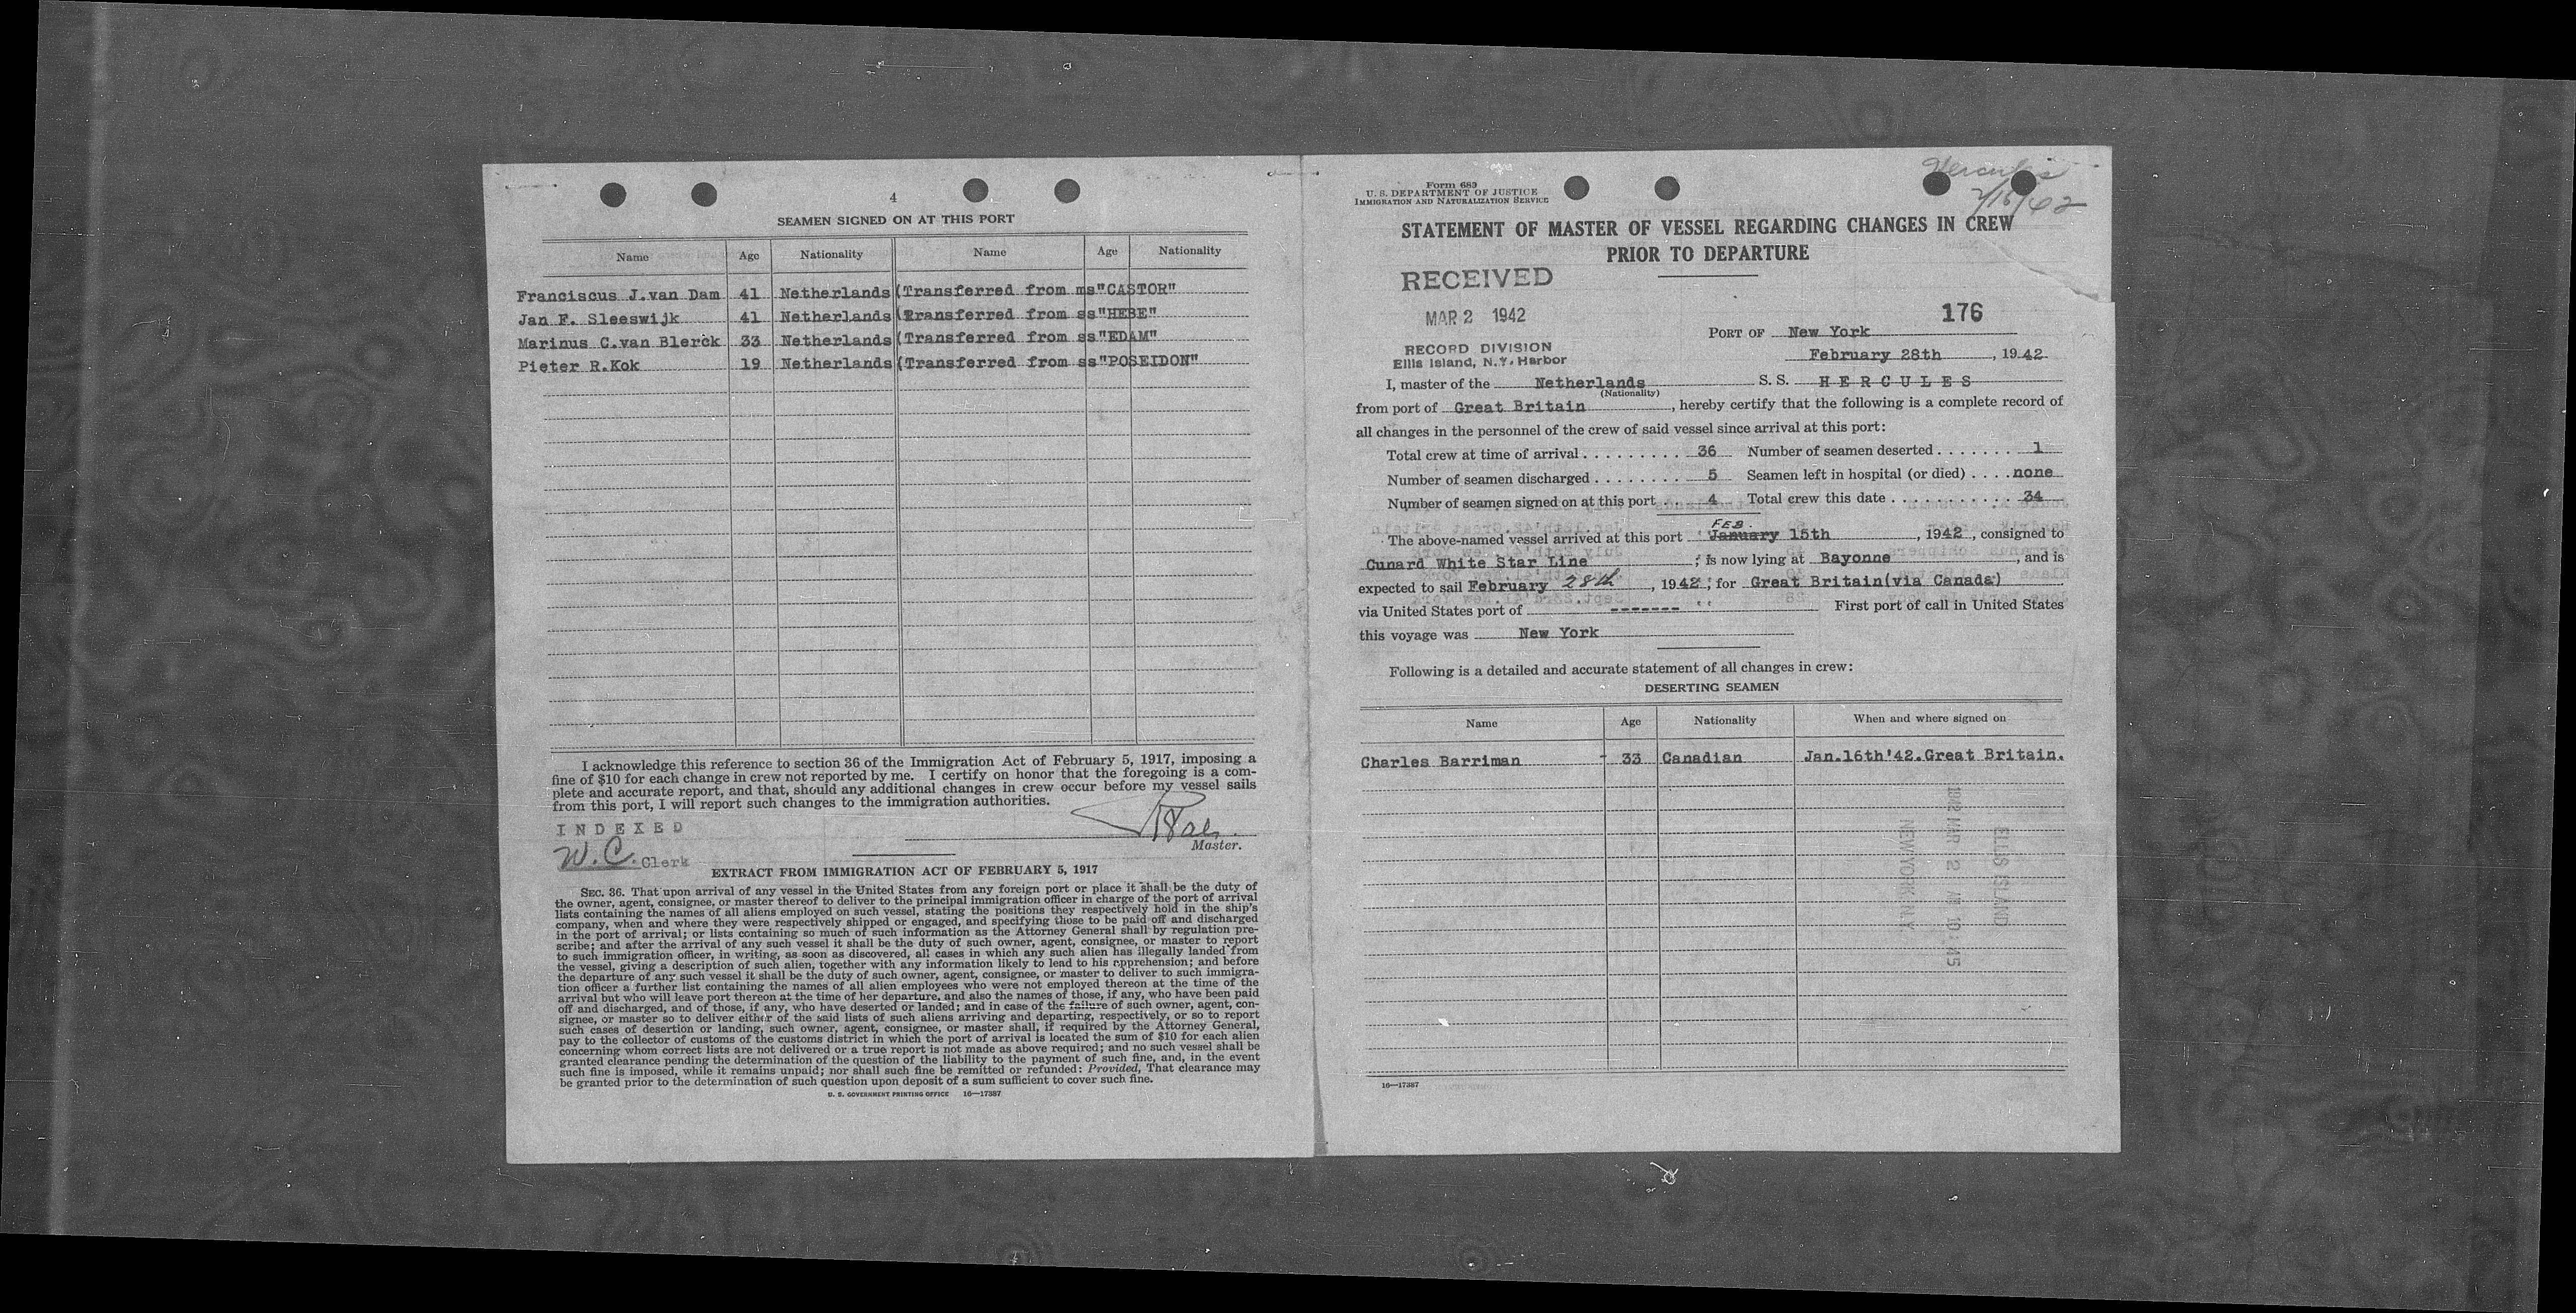 4
SEAMEN SIGNED ON AT THIS PORT
Name Age Nationality Name Age Nationality
Franciscus J.van Dam 41 Netherlands (Transferred from ms"CASTOR"
Jan F. Sleeswijk 41 Netherlands (Transferred from ss"HEBE"
Marinus C.van Blerck 33 Netherlands (Transferred from ss"EDAM"
Pieter R.Kok 19 Netherlands (Transferred from ss"POSEIDON"
I acknowledge this reference to section 36 of the Immigration Act of February 5, 1917, imposing a
fine of $10 for each change in crew not reported by me. I certify on honor that the foregoing is a com-
plete and accurate report, and that, should any additional changes in crew occur before my vessel sails
from this port, I will report such changes to the immigration authorities.
INDEXED
W. C. Clerk
Master.
EXTRACT FROM IMMIGRATION ACT OF FEBRUARY 5, 1917
SEC. 36. That upon arrival of any vessel in the United States from any foreign port or place it shall be the duty of
the owner, agent, consignee, or master thereof to deliver to the principal immigration officer in charge of the port of arrival
lists containing the names of all aliens employed on such vessel, stating the positions they respectively hold in the ship's
company, when and where they were respectively shipped or engaged, and specifying those to be paid off and discharged
in the port of arrival; or lists containing so much of such information as the Attorney General shall by regulation pre-
scribe; and after the arrival of any such vessel it shall be the duty of such owner, agent, consignee, or master to report
to such immigration officer, in writing, as soon as discovered, all cases in which any such alien has illegally landed from
the vessel, giving a description of such alien, together with any information likely to lead to his apprehension; and before
the departure of any such vessel it shall be the duty of such owner, agent, consignee, or master to deliver to such immigra-
tion officer a further list containing the names of all alien employees who were not employed thereon at the time of the
arrival but who will leave port thereon at the time of her departure, and also the names of those, if any, who have been paid
off and discharged, and of those, if any, who have deserted or landed; and in case of the failure of such owner, agent, con-
signee, or master so to deliver either of the said lists of such aliens arriving and departing, respectively, or so to report
such cases of desertion or landing, such owner, agent, consignee, or master shall, if required by the Attorney General,
pay to the collector of customs of the customs district in which the port of arrival is located the sum of $10 for each alien
concerning whom correct lists are not delivered or a true report is not made as above required; and no such vessel shall be
granted clearance pending the determination of the question of the liability to the payment of such fine, and, in the event
such fine is imposed, while it remains unpaid; nor shall such fine be remitted or refunded: Provided, That clearance may
be granted prior to the determination of such question upon deposit of a sum sufficient to cover such fine.
U. S. GOVERNMENT PRINTING OFFICE 16—17387
Hercules
2/15/42
Form 689
U. S. DEPARTMENT OF JUSTICE
IMMIGRATION AND NATURALIZATION SERVICE
STATEMENT OF MASTER OF VESSEL REGARDING CHANGES IN CREW
PRIOR TO DEPARTURE
RECEIVED
MAR 2 1942
RECORD DIVISION
Ellis Island, N.Y. Harbor
176
PORT OF New York
February 28th, 1942
I, master of the Netherlands S. S. HERCULES
(Nationality)
from port of Great Britain, hereby certify that the following is a complete record of
all changes in the personnel of the crew of said vessel since arrival at this port:
Total crew at time of arrival 36 Number of seamen deserted 1
Number of seamen discharged 5 Seamen left in hospital (or died) none
Number of seamen signed on at this port 4 Total crew this date 34
FEB.
The above-named vessel arrived at this port January 15th, 1942, consigned to
Cunard White Star Line; is now lying at Bayonne, and is
expected to sail February 28th, 1942, for Great Britain(via Canada)
via United States port of ------- First port of call in United States
this voyage was New York
Following is a detailed and accurate statement of all changes in crew:
DESERTING SEAMEN
Name Age Nationality When and where signed on
Charles Barriman - 33 Canadian Jan.16th'42.Great Britain.
ELLIS ISLAND
1942 MAR 2 AM 10:45
NEW YORK N.Y.
16—17387